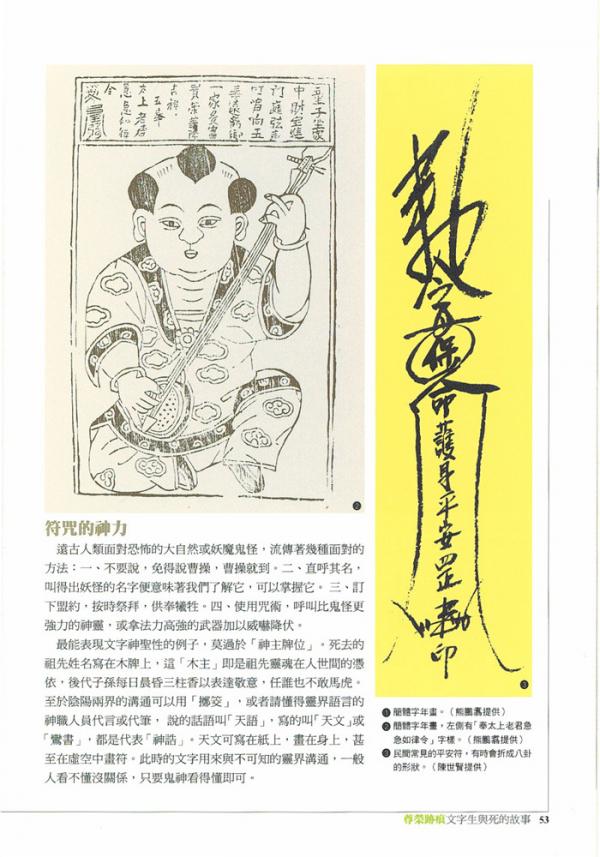 中財宝進
吉祥
五奉
太上老君
急急如律
令
勅令
保命
印護身平安罡
印
❷
❸
符咒的神力
遠古人類面對恐怖的大自然或妖魔鬼怪，流傳著幾種面對的
方法：一、不要說，免得說曹操，曹操就到。二、直呼其名，
叫得出妖怪的名字便意味著我們了解它，可以掌握它。三、訂
下盟約，按時祭拜，供奉犧牲。四、使用咒術，呼叫比鬼怪更
強力的神靈，或拿法力高強的武器加以威嚇降伏。
最能表現文字神聖性的例子，莫過於「神主牌位」。死去的
祖先姓名寫在木牌上，這「木主」即是祖先靈魂在人世間的憑
依，後代子孫每日晨昏三柱香以表達敬意，任誰也不敢馬虎。
至於陰陽兩界的溝通可以用「擲筊」，或者請懂得靈界語言的
神職人員代言或代筆，說的話語叫「天語」，寫的叫「天文」或
「鸞書」，都是代表「神誥」。天文可寫在紙上，畫在身上，甚
至在虛空中畫符。此時的文字用來與不可知的靈界溝通，一般
人看不懂沒關係，只要鬼神看得懂即可。
❶ 簡體字年畫。（熊鵬翥提供）
❷ 簡體字年畫，左側有「奉太上老君急
急如律令」字樣。（熊鵬翥提供）
❸ 民間常見的平安符，有時會折成八卦
的形狀。（陳世賢提供）
尊榮跡痕文字生與死的故事 53